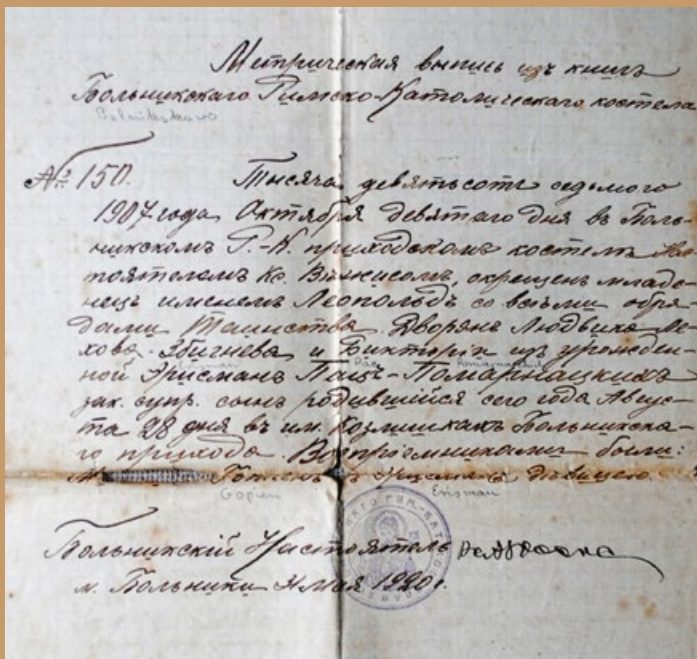 Метрическая выпись изъ книгъ
Больникскаго Римско-Католическаго костела
Bolnikskawo
№ 150. Тысяча девятьсотъ седьмого
1907 года Октября девятаго дня въ Боль-
никскомъ Р.-К. приходскомъ костелѣ Нас-
тоятелемъ Кс. окрещенъ младе-
нецъ именемъ Леопольдъ со всѣми обря-
дами Таинства. Дворянъ Людвика
Збигнева и Викторіи изъ урожден-
ной Эрисманъ Пацъ-Помарнацкихъ
Erisman Pac Pomarnackich
зак. супр. сынъ родившійся сего года Авгус-
та 28 дня въ им. Козлишкахъ Больникска-
го прихода. Воспріемниками были:
Эрисманъ дѣвицею.
Erisman
Больникскій Настоятель
м. Больники мая 1920 г.